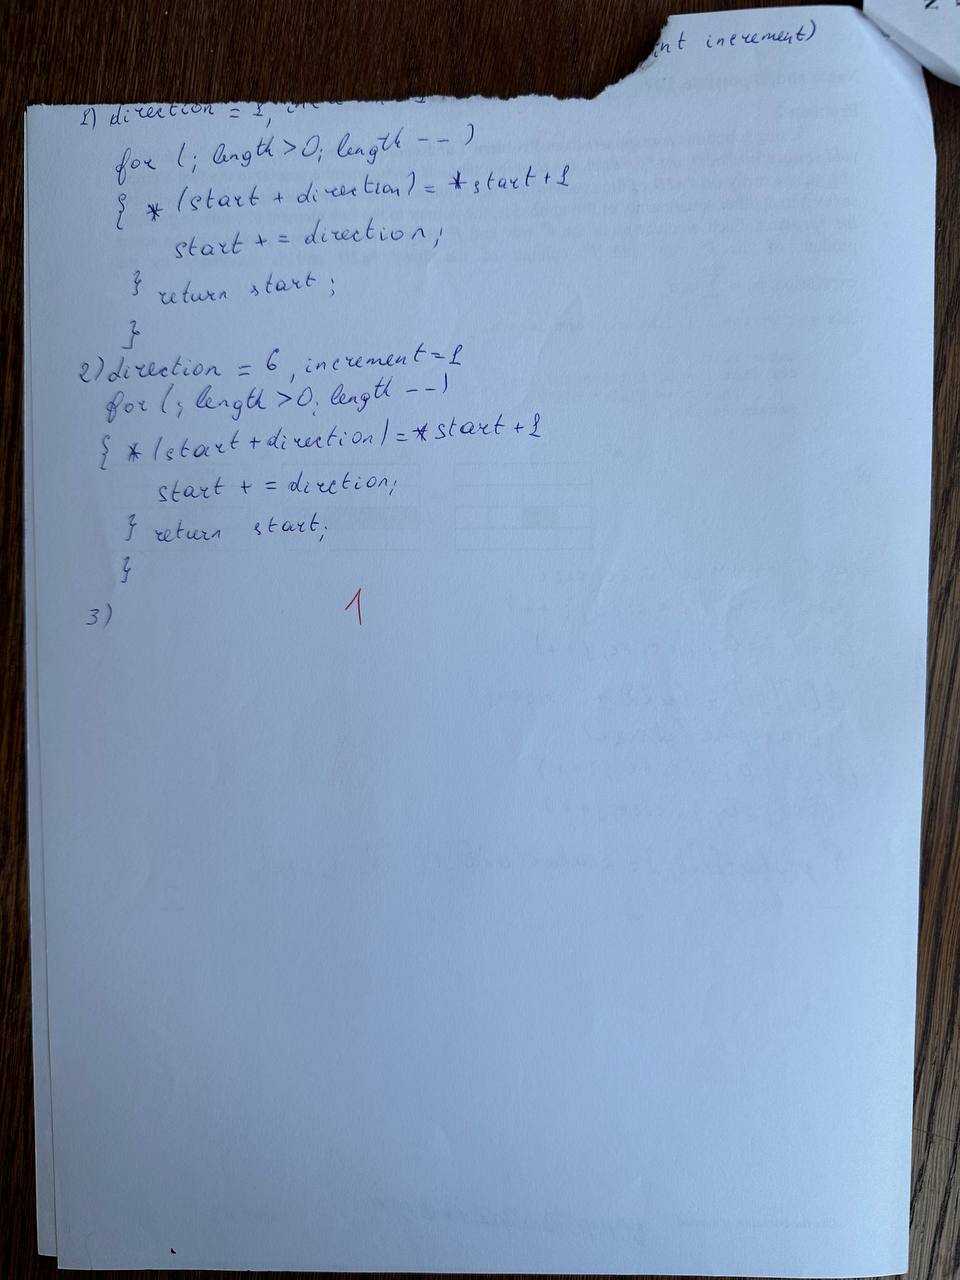 int increment)
1) direction = 1,
for (; length > 0; length --)
{ * (start + direction) = *start + 1
start += direction;
} return start;
}
2) direction = 6, increment = 1
for (; length > 0; length --)
{ * (start + direction) = *start + 1
start += dirction;
} return start;
}
3)
1